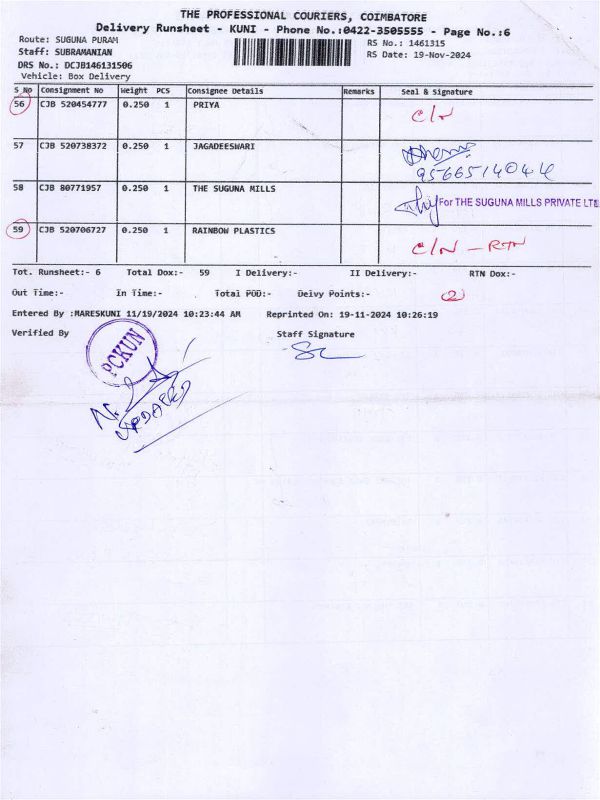 THE PROFESSIONAL COURIERS, COIMBATORE
Delivery Runsheet - KUNI - Phone No.:0422-3505555 - Page No.:6
Route: SUGUNA PURAM RS No.: 1461315
Staff: SUBRAMANIAN RS Date: 19-Nov-2024
DRS No.: DCJB146131506
Vehicle: Box Delivery
S_No Consignment No Weight PCS Consignee Details Remarks Seal & Signature
56 CJB 520454777 0.250 1 PRIYA C/N
57 CJB 520738372 0.250 1 JAGADEESWARI
9566514044
58 CJB 80771957 0.250 1 THE SUGUNA MILLS For THE SUGUNA MILLS PRIVATE LTD
59 CJB 520706727 0.250 1 RAINBOW PLASTICS C/N - RTN
Tot. Runsheet:- 6 Total Dox:- 59 I Delivery:- II Delivery:- RTN Dox:-
Out Time:- In Time:- Total POD:- Delvy Points:- 2
Entered By :MARESKUNI 11/19/2024 10:23:44 AM Reprinted On: 19-11-2024 10:26:19
Verified By Staff Signature
PCKUN
UPDATED